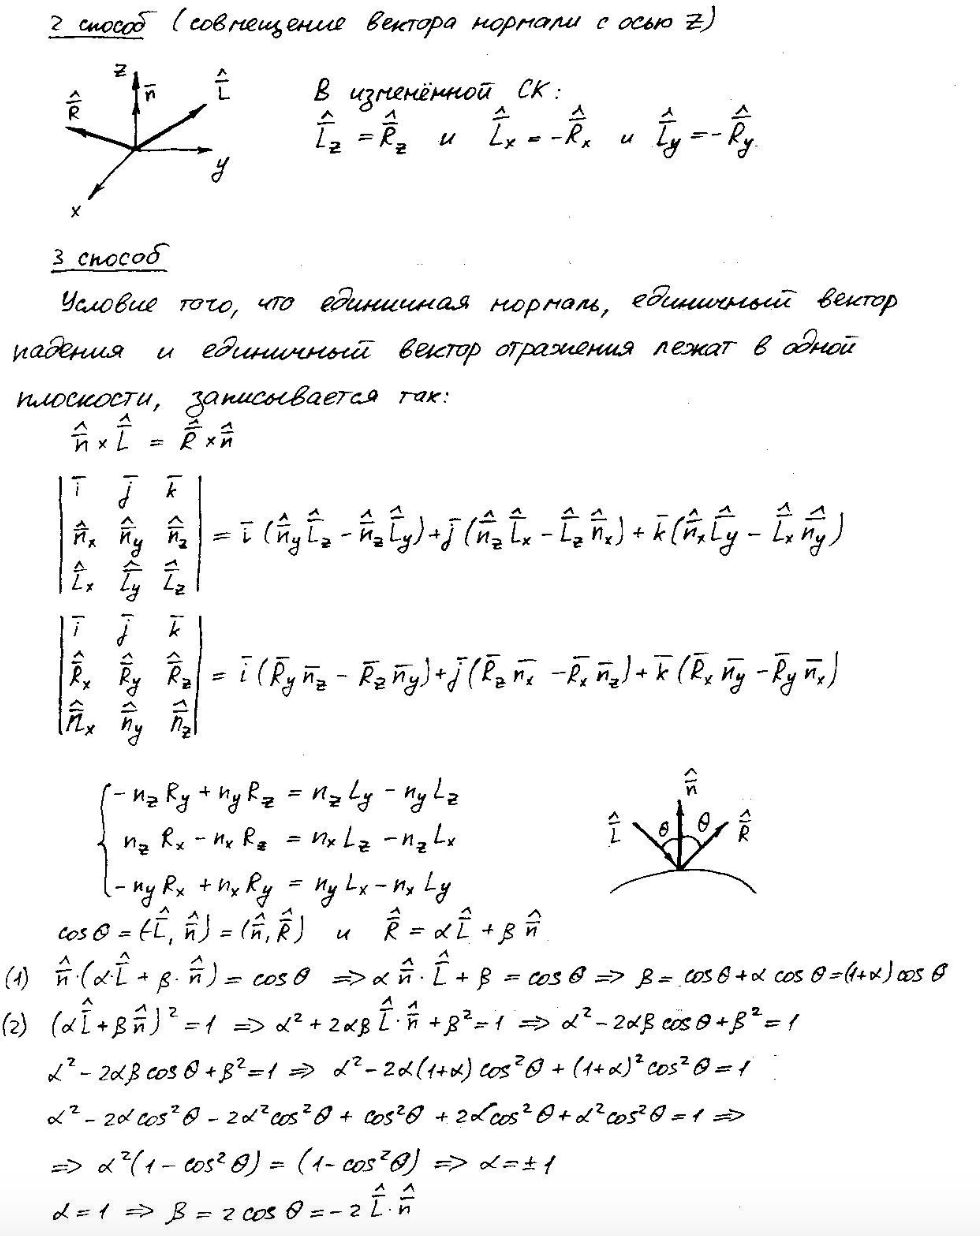 2 способ (совмещение вектора нормали с осью Z)
z n̄ L̂̄ R̂̄ y x
В изменённой СК:
L̂̄z = R̂̄z и L̂̄x = -R̂̄x и L̂̄y = -R̂̄y.
3 способ
Условие того, что единичная нормаль, единичный вектор
падения и единичный вектор отражения лежат в одной
плоскости, записывается так:
n̂̄ × L̂̄ = R̂̄ × n̂̄
| ī j̄ k̄ |
| n̂̄x n̂̄y n̂̄z | = ī (n̂̄y L̂̄z - n̂̄z L̂̄y) + j̄ (n̂̄z L̂̄x - L̂̄z n̂̄x) + k̄ (n̂̄x L̂̄y - L̂̄x n̂̄y)
| L̂̄x L̂̄y L̂̄z |
| ī j̄ k̄ |
| R̂̄x R̂̄y R̂̄z | = ī (R̄y n̄z - R̄z n̄y) + j̄ (R̄z n̄x - R̄x n̄z) + k̄ (R̄x n̄y - R̄y n̄x)
| n̂̄x n̂̄y n̂̄z |
{ -nz Ry + ny Rz = nz Ly - ny Lz
nz Rx - nx Rz = nx Lz - nz Lx
-ny Rx + nx Ry = ny Lx - nx Ly
n̂̄ L̂̄ θ θ R̂̄
cos θ = (-L̂̄, n̂̄) = (n̂̄, R̂̄) и R̂̄ = αL̂̄ + β n̂̄
(1) n̂̄·(α·L̂̄ + β·n̂̄) = cos θ => α n̂̄·L̂̄ + β = cos θ => β = cos θ + α cos θ = (1+α) cos θ
(2) (αL̂̄ + βn̂̄)² = 1 => α² + 2αβ L̂̄·n̂̄ + β² = 1 => α² - 2αβ cos θ + β² = 1
α² - 2αβ cos θ + β² = 1 => α² - 2α(1+α) cos²θ + (1+α)² cos²θ = 1
α² - 2α cos²θ - 2α² cos²θ + cos²θ + 2α cos²θ + α² cos²θ = 1 =>
=> α²(1 - cos²θ) = (1 - cos²θ) => α = ±1
α = 1 => β = 2 cos θ = -2 L̂̄·n̂̄